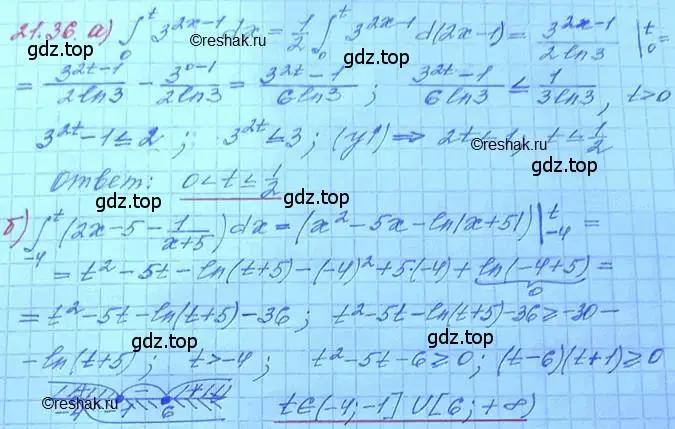 21.36 а) ∫₀ᵗ 3^(2x-1) dx = 1/2 ∫₀ᵗ 3^(2x-1) d(2x-1) = 3^(2x-1)/(2ln3) |₀ᵗ =
= 3^(2t-1)/(2ln3) - 3^(0-1)/(2ln3) = (3^(2t)-1)/(6ln3) ; (3^(2t)-1)/(6ln3) ≤ 1/(3ln3), t>0
3^(2t)-1≤2 ; 3^(2t)≤3 ; (y↑) ⟹ 2t≤1, t≤1/2
Ответ: 0<t≤1/2
б) ∫₋₄ᵗ (2x-5-1/(x+5))dx = (x²-5x-ln|x+5|) |₋₄ᵗ =
= t²-5t-ln(t+5)-(-4)²+5·(-4)+ln(-4+5) =
0
= t²-5t-ln(t+5)-36 ; t²-5t-ln(t+5)-36≥-30-
-ln(t+5) ; t>-4 ; t²-5t-6≥0 ; (t-6)(t+1)≥0
-4 -1 6 t∈(-4;-1]∪[6;+∞)
©reshak.ru
©reshak.ru
©reshak.ru
©reshak.ru
gdz.top
gdz.top
gdz.top
gdz.top
gdz.top
gdz.top
gdz.top
gdz.top